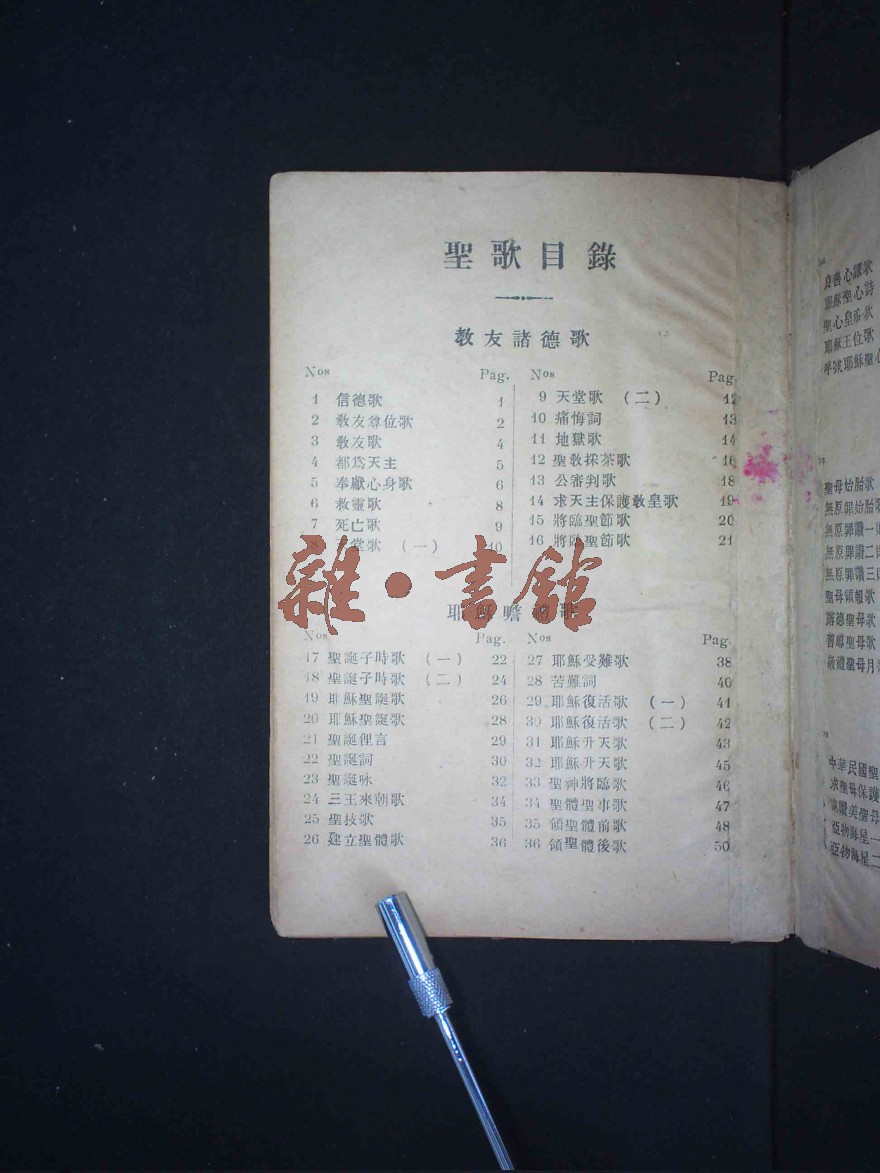 聖歌目錄
教友諸德歌
Nos Pag.
1 信德歌 1
2 教友尊位歌 2
3 教友歌 4
4 都爲天主 5
5 奉獻心身歌 6
6 救靈歌 8
7 死亡歌 9
8 堂歌 (一) 10
Nos Pag
9 天堂歌 (二) 12
10 痛悔詞 13
11 地獄歌 14
12 聖教採茶歌 16
13 公審判歌 18
14 求天主保護教皇歌 19
15 將臨聖節歌 20
16 將臨聖節歌 21
雜·書舘
耶穌瞻禮歌
Nos Pag.
17 聖誕子時歌 (一) 22
18 聖誕子時歌 (二) 24
19 耶穌聖誕歌 26
20 耶穌聖誕歌 28
21 聖誕俚言 29
22 聖誕詞 30
23 聖誕咏 32
24 三王來朝歌 34
25 聖技歌 35
26 建立聖體歌 36
Nos Pag
27 耶穌受難歌 38
28 苦難詞 40
29 耶穌復活歌 (一) 41
30 耶穌復活歌 (二) 42
31 耶穌升天歌 43
32 耶穌升天歌 45
33 聖神將臨歌 46
34 聖體聖事歌 47
35 領聖體前歌 48
36 領聖體後歌 50
良善心謙歌
耶穌聖心詩
聖心皇帝歌
耶穌王位歌
呼號耶穌聖心
聖母始胎歌
無原罪始胎歌
無原罪讚一
無原罪讚二
無原罪讚三
聖母領報歌
露德聖母歌
善導聖母歌
敬禮聖母月
中華民國聖
求聖母保護
讚美聖母
亞物海星一
亞物海星二